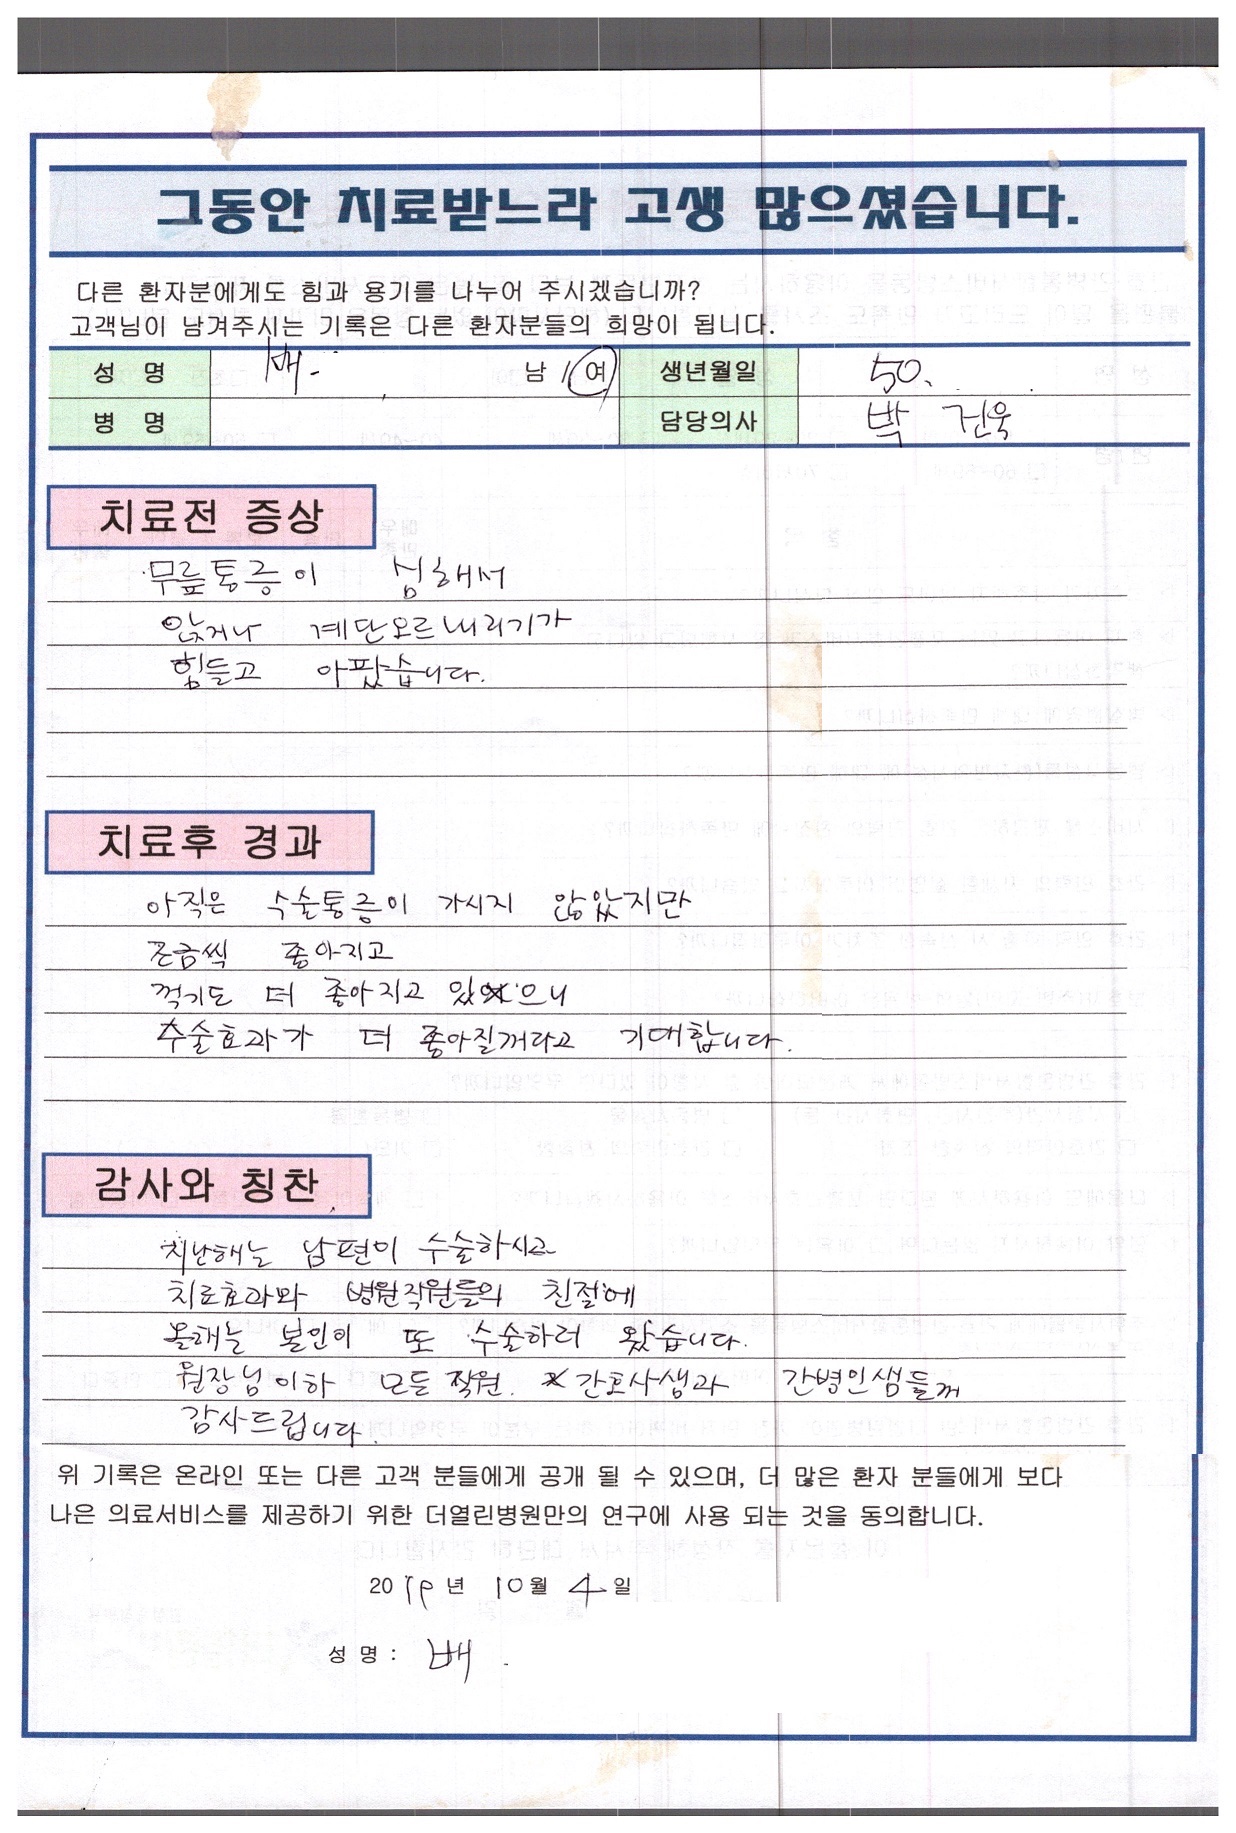 그동안 치료받느라 고생 많으셨습니다.
다른 환자분에게도 힘과 용기를 나누어 주시겠습니까?
고객님이 남겨주시는 기록은 다른 환자분들의 희망이 됩니다.
성 명 배. 남 / 여 생년월일 50.
병 명 담당의사 박 건욱
치료전 증상
무릎통증이 심해서
앉거나 계단오르내리기가
힘들고 아팠습니다.
치료후 경과
아직은 수술통증이 가시지 않았지만
조금씩 좋아지고
꺽기도 더 좋아지고 있으니
수술효과가 더 좋아질꺼라고 기대합니다.
감사와 칭찬
지난해는 남편이 수술하시고
치료효과와 병원직원들의 친절에
올해는 본인이 또 수술하러 왔습니다.
원장님이하 모든 직원. 간호사샘과 간병인샘들께
감사드립니다.
위 기록은 온라인 또는 다른 고객 분들에게 공개 될 수 있으며, 더 많은 환자 분들에게 보다
나은 의료서비스를 제공하기 위한 더열린병원만의 연구에 사용 되는 것을 동의합니다.
2019년 10월 4일
성 명 : 배